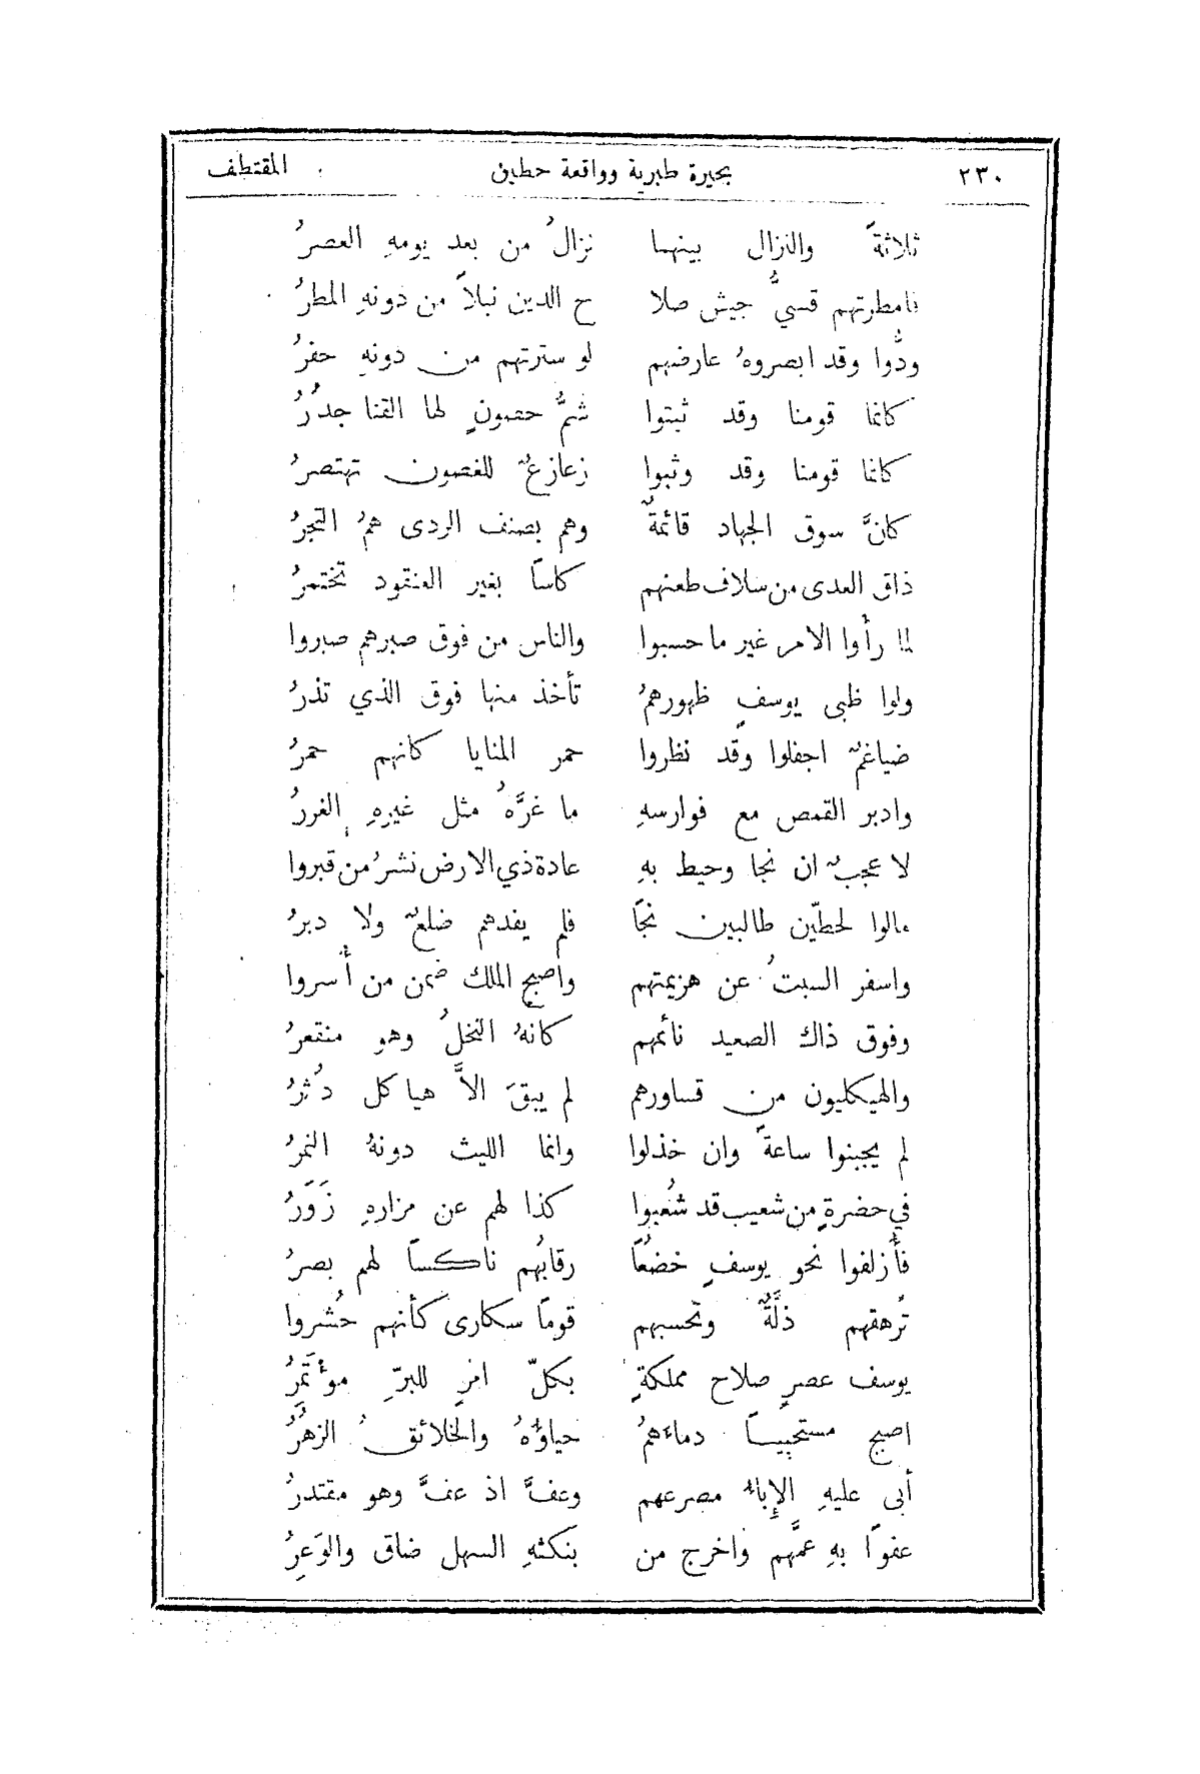 ٢٣٠ بحيرة طبرية وواقعة حطين المقتطف
ثلاثةً والنزال بينهما نزالُ من بعد يومهِ العصرُ
فامطرتهم قسيُّ جيش صلا ح الدين نبلاً من دونهِ المطرُ
ودُّوا وقد ابصروهُ عارضهم لو سترتهم من دونهِ حفرُ
كانما قومنا وقد ثبتوا شمُّ حصونٍ لها القنا جدُرُ
كانما قومنا وقد وثبوا زعازعٌ للغصون تهتصرُ
كانَّ سوق الجهاد قائمةٌ وهم بصنف الردى همُ التجرُ
ذاق العدى من سلاف طعنهم كاساً بغير العنقود تختمرُ
لما رأَوا الامر غير ما حسبوا والناس من فوق صبرهم صبروا
ولوا ظبى يوسفٍ ظهورهمُ تأخذ منها فوق الذي تذرُ
ضياغمٌ اجفلوا وقد نظروا حمر المنايا كانهم حمرُ
وادبر القمص مع فوارسهِ ما غرَّهُ مثل غيرهِ الغررُ
لا عجبٌ ان نجا وحيط بهِ عادة ذي الارض نشرُ من قبروا
مالوا لحطّين طالبين نجًا فلم يفدهم ضلعٌ ولا دبرُ
واسفر السبتُ عن هزيمتهم واصبح الملك ضمن من أُسروا
وفوق ذاك الصعيد نائمهم كانهُ النخلُ وهو منقعرُ
والهيكليون من قساورهم لم يبقَ الاَّ هياكل دُثرُ
لم يجبنوا ساعةً وان خذلوا وانما الليث دونهُ النمرُ
في حضرةٍ من شعيب قد شُعبوا كذا لهم عن مزارهِ زَوَرُ
فأُزلفوا نحو يوسفٍ خضُعًا رقابُهم ناكسًا لهم بصرُ
تُرهقهم ذلَّةٌ وتحسبهم قومًا سكارى كأنهم حُشروا
يوسف عصرٍ صلاح مملكةٍ بكلّ امرٍ للبرّ مؤتَمِرُ
اصبح مستحييًا دماءهمُ حياؤُهُ والخلائقُ الزهُرُ
أبى عليهِ الإِباءُ مصرعهم وعفَّ اذ عفَّ وهو مقتدرُ
عفوًا بهِ عمَّهم واخرج من بنكثهِ السهل ضاق والوَعِرُ